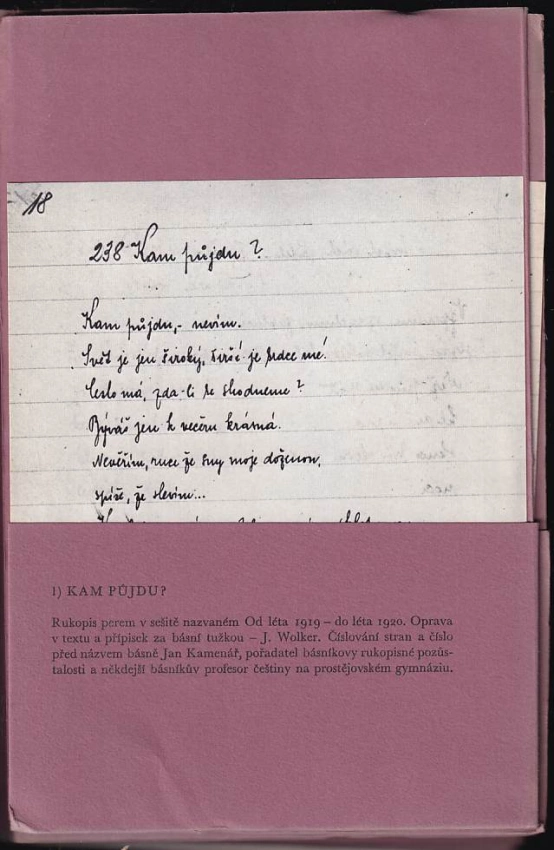 18
238 Kam půjdu?
Kam půjdu, - nevím.
Svět je jen široký, širší je srdce mé.
Cesto má, zda-li se shodneme?
Býváš jen k večeru krásná.
Nevěřím, ruce že sny moje doženou,
spíše, že slevím...
1) KAM PŮJDU?
Rukopis perem v sešitě nazvaném Od léta 1919 – do léta 1920. Oprava
v textu a přípisek za básní tužkou – J. Wolker. Číslování stran a číslo
před názvem básně Jan Kamenář, pořadatel básníkovy rukopisné pozůs-
talosti a někdejší básníkův profesor češtiny na prostějovském gymnáziu.